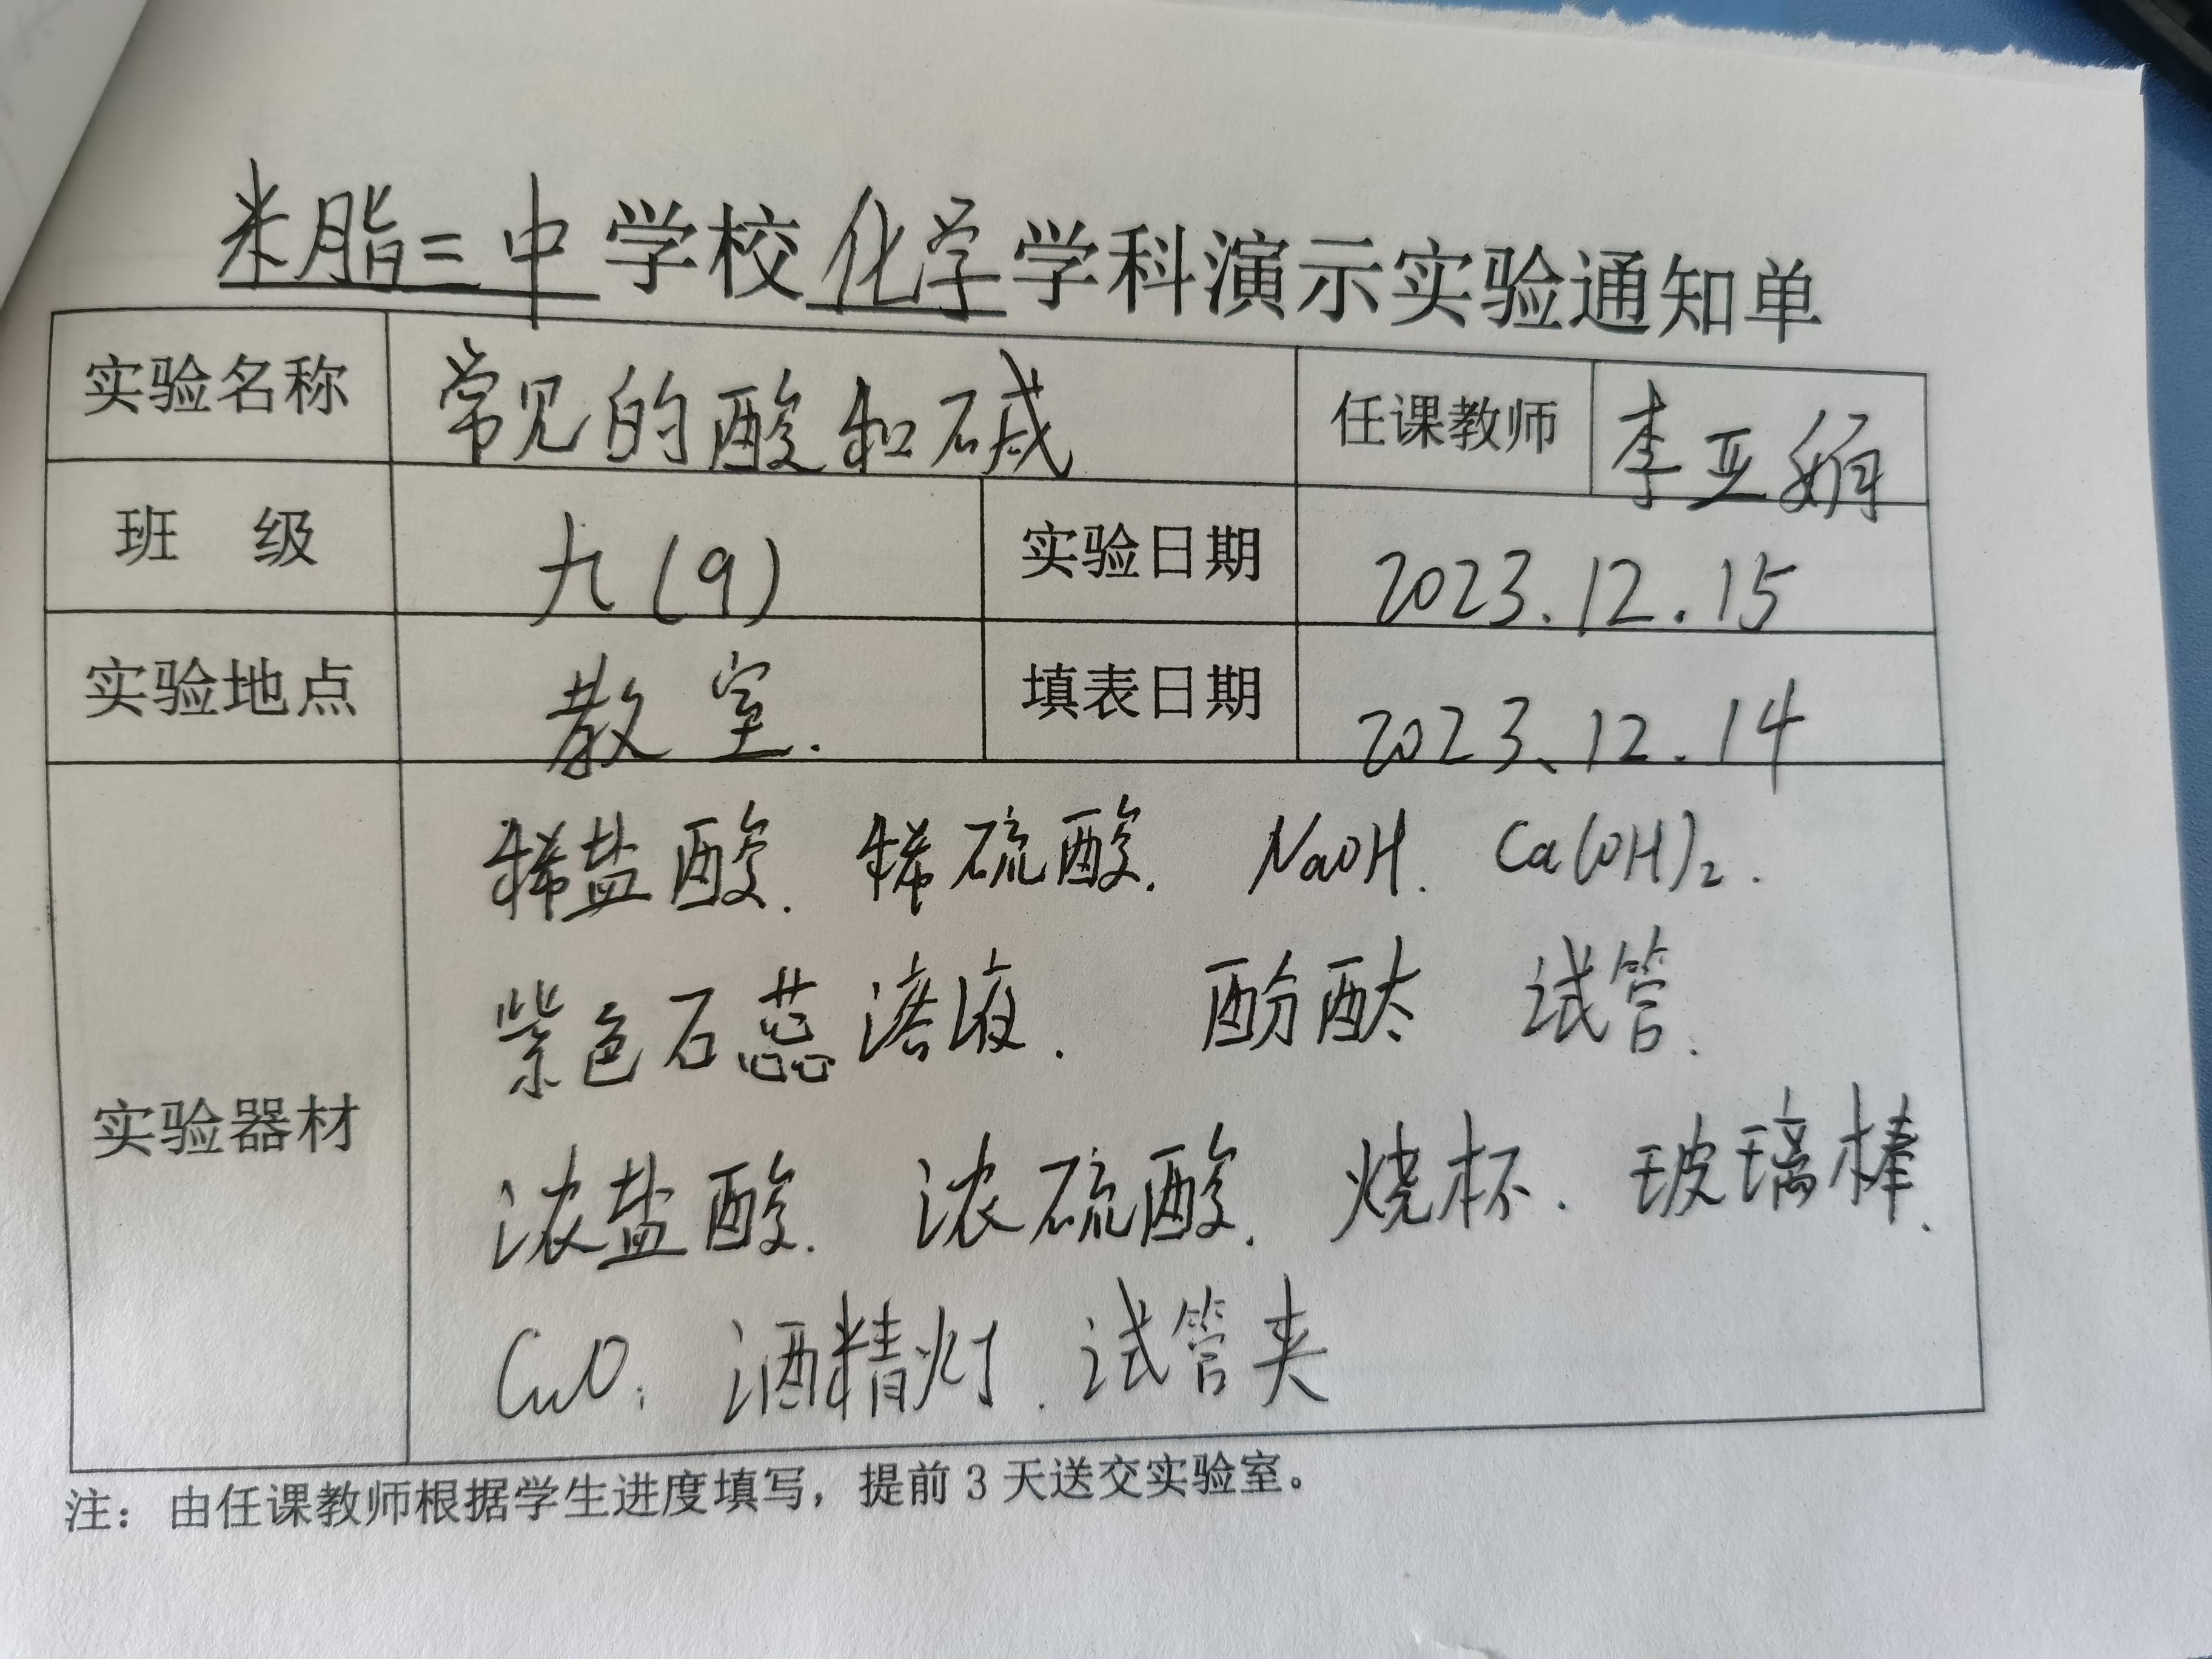 米脂三中学校化学学科演示实验通知单
实验名称 常见的酸和碱 任课教师 李亚娟
班 级 九(9) 实验日期 2023.12.15
实验地点 教室. 填表日期 2023、12.14
稀盐酸. 稀硫酸. NaOH. Ca(OH)₂.
紫色石蕊溶液. 酚酞 试管.
实验器材
浓盐酸. 浓硫酸. 烧杯. 玻璃棒、
CuO. 酒精灯. 试管夹
注：由任课教师根据学生进度填写，提前 3 天送交实验室。